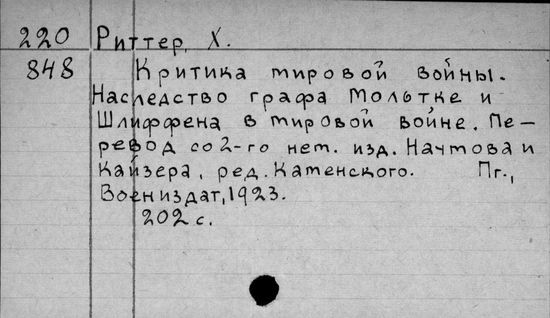 220 Риттер, Х.
848 Критика мировой войны.
Наследство графа Мольтке и
Шлиффена в мировой войне. Пе-
ревод со 2-го нем. изд. Начтова и
Кайзера, ред. Каменского. Пг.,
Воениздат, 1923.
202 с.